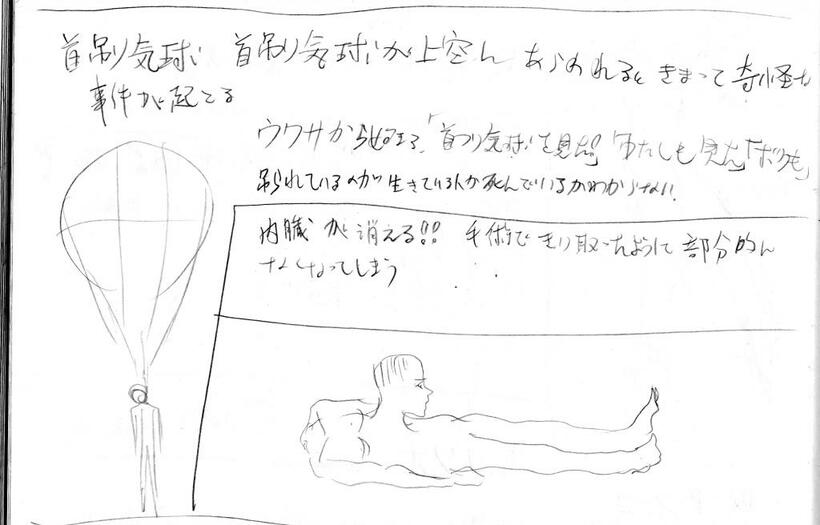 首吊り気球 首吊り気球が上空に あらわれるときまって奇怪な
事件が起こる
ウワサから始まる、「首つり気球を見た」「わたしも見た」「ボクも」
吊られているのが生きているか死んでいるかわからない
内臓が消える!! 手術で切り取ったように部分的に
なくなってしまう